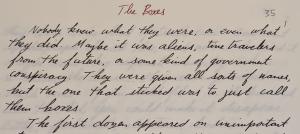 The Boxes
35
Nobody knew what they were, or even what
they did. Maybe it was aliens, time travelers
from the future, or some kind of government
conspiracy. They were given all sorts of names,
but the one that sticked was to just call
them boxes.
The first dozen appeared on unimportant